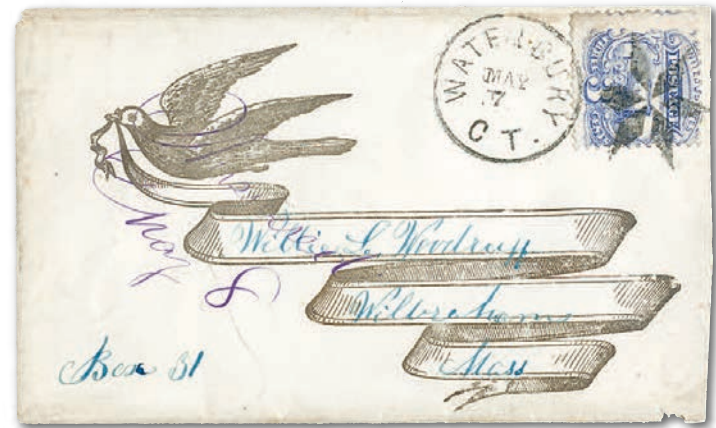 WATERBURY
MAY
7
CT.
POSTAGE
Willie L. Woodruff
Wilbraham
Mass
May 8
Box 31